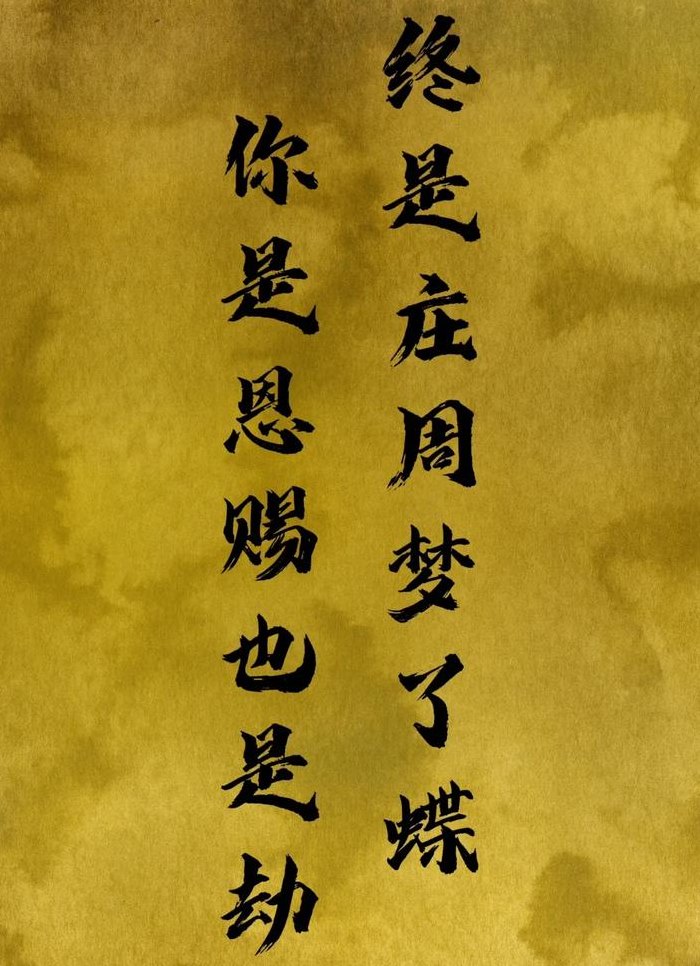 终是庄周梦了蝶
你是恩赐也是劫